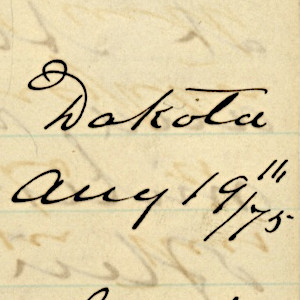 Dakota
Aug 19"/75